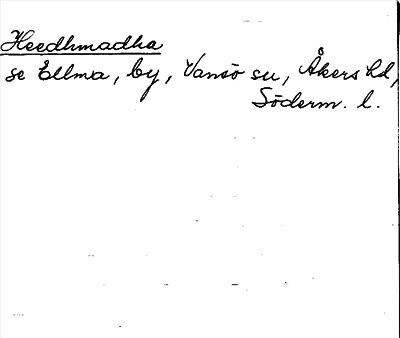 Heedhmadha
se Ellma, by, Vansö su, Åkers hd,
Söderm. l.